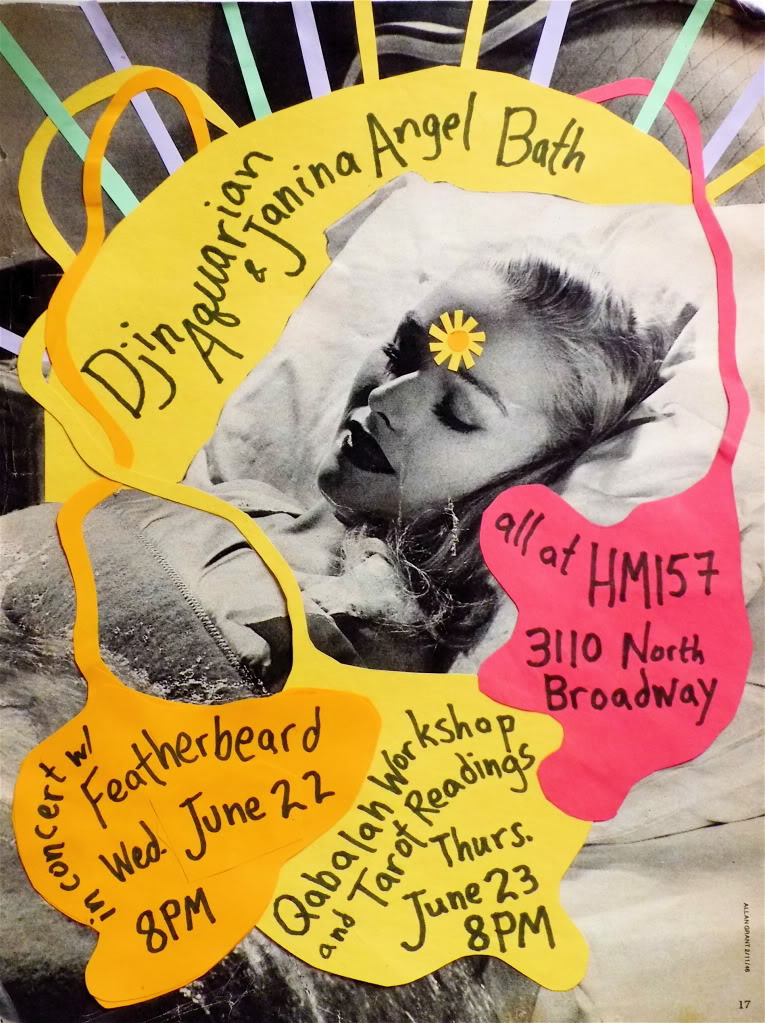 Djin Aquarian
& Janina Angel Bath
all at HM157
3110 North
Broadway
in concert w/
Featherbeard
Wed. June 22
8PM
Qabalah Workshop
and Tarot Readings
Thurs.
June 23
8PM
ALLAN GRANT 2/11/46
17